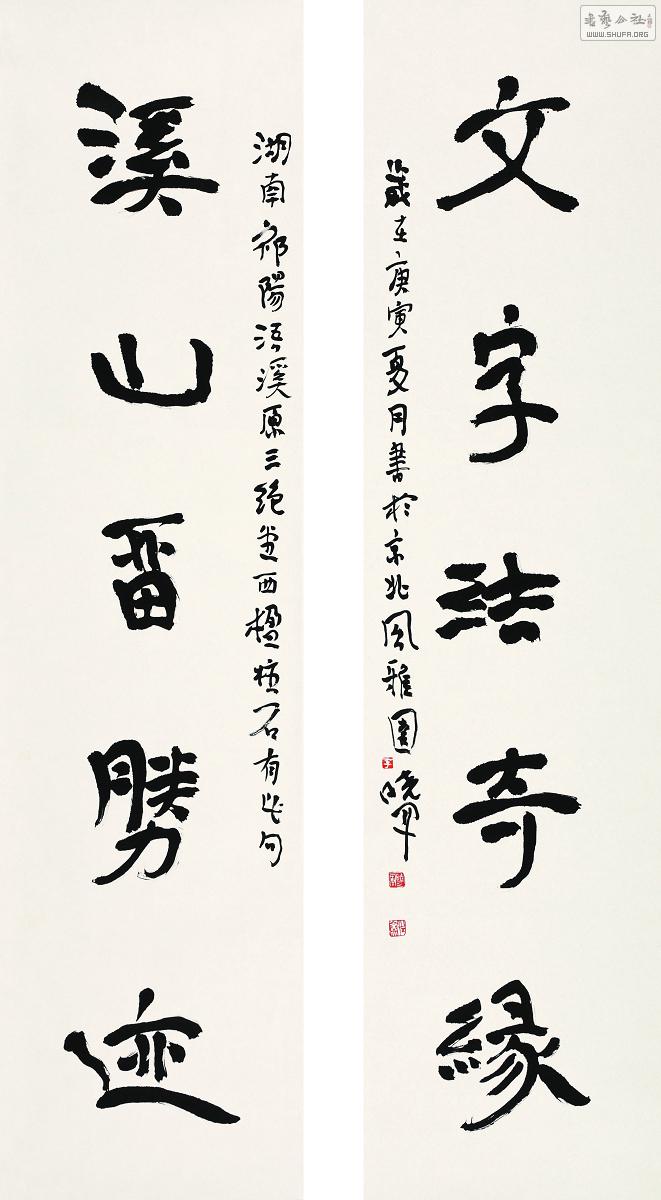 文字結奇緣
歲在庚寅夏月書於京北風雅園曉軍
湖南祁陽浯溪原三絕堂西楹柱石有此句
溪山畱勝迹
書藝公社
WWW.SHUFA.ORG